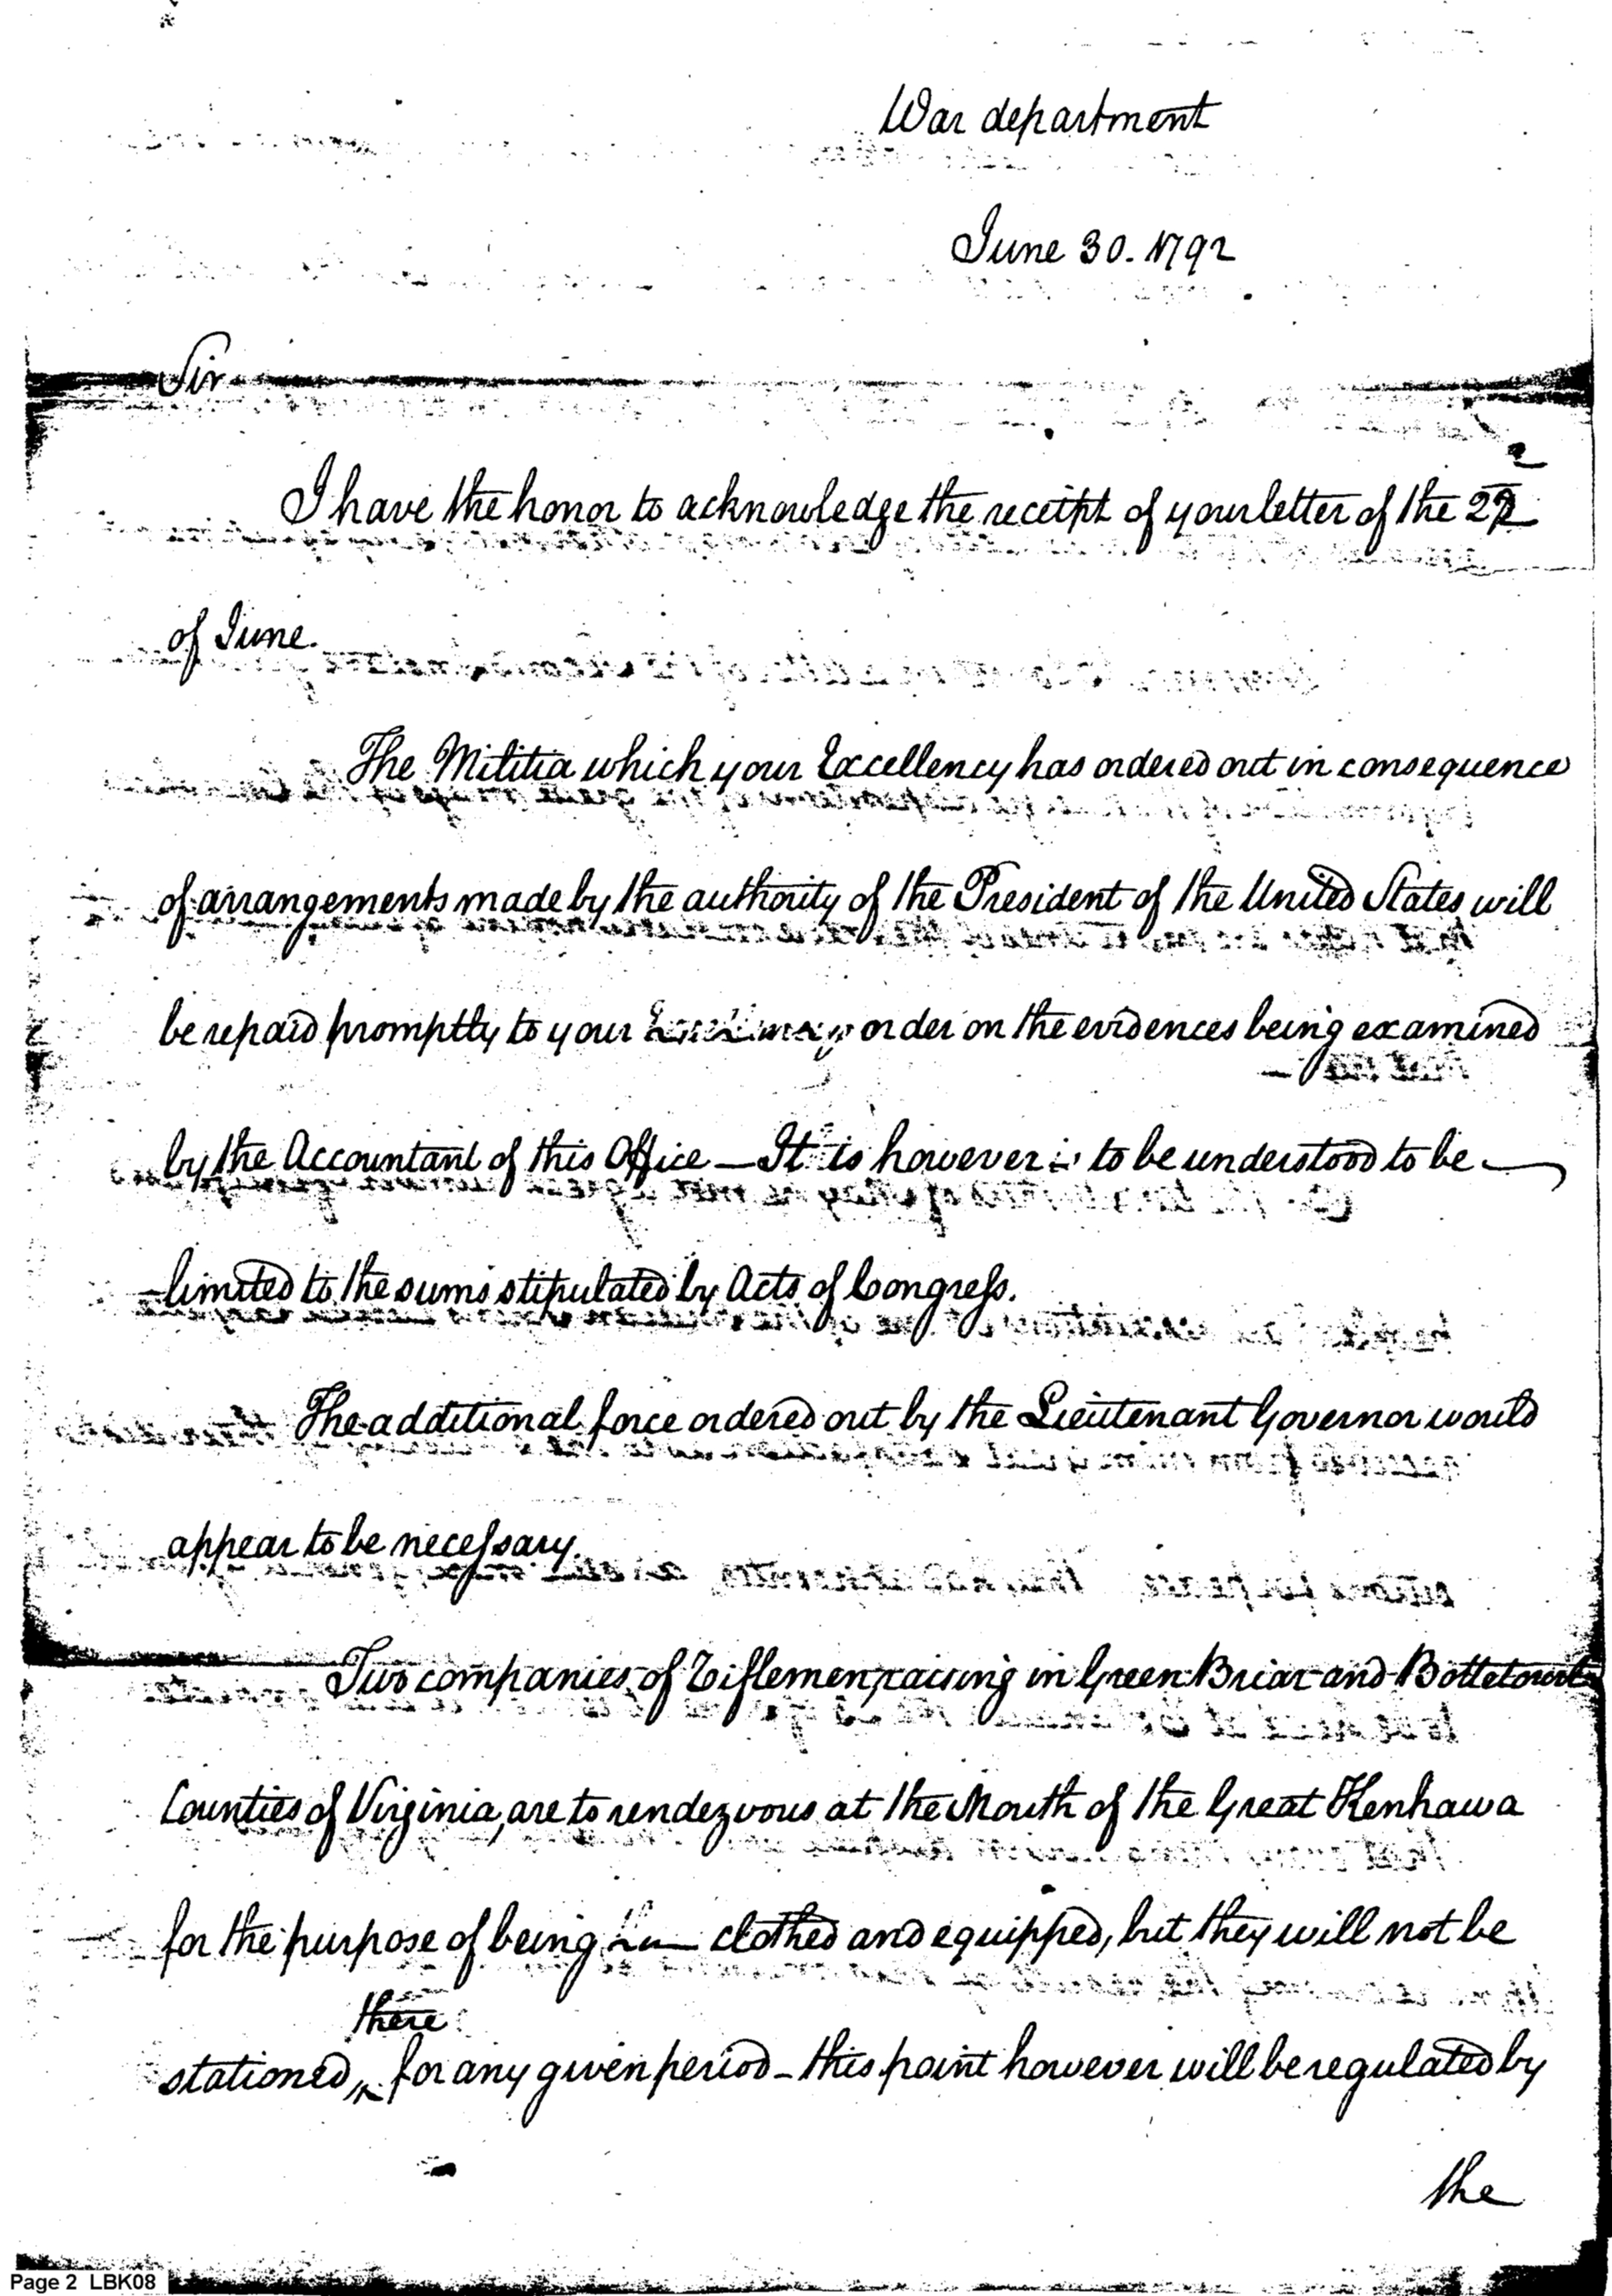 War department
June 30. 1792
Sir
I have the honor to acknowledge the receipt of your letter of the 22
of June.
The Militia which your Excellency has ordered out in consequence
of arrangements made by the authority of the President of the United States, will
be repaid promptly to your order on the evidences being examined
by the Accountant of this Office — It is however to be understood to be —
limited to the sums stipulated by Acts of Congress.
The additional force ordered out by the Lieutenant Governor would
appear to be necessary.
Two companies of Riflemen, raising in Green Briar and Bottetourt
Counties of Virginia, are to rendezvous at the Mouth of the Great Kenhawa
for the purpose of being clothed and equipped, but they will not be
there
stationed, for any given period – this point however will be regulated by
the
Page 2 LBK08